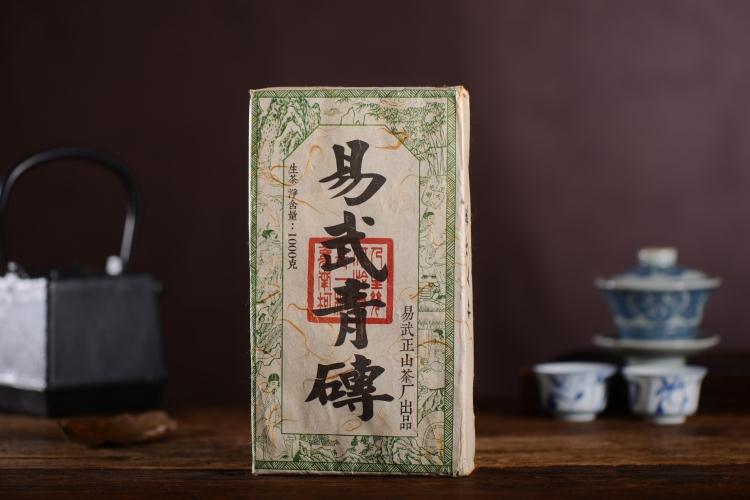 易武青磚
生茶 淨含量：1000克
易武正山茶厂出品